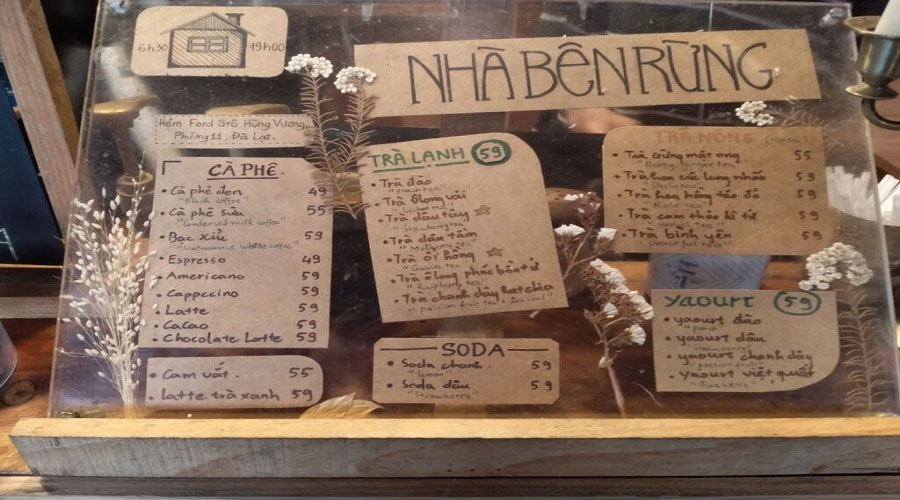 6h30 19h00
NHÀ BÊN RỪNG
Hẻm Ford Hùng Vương
Phường 11, Đà Lạt.
CÀ PHÊ
Cà phê đen 49
"Black coffee"
Cà phê sữa 55
"Condensed milk coffee"
Bạc xỉu 59
"Vietnamese white coffee"
Espresso 49
Americano 59
Cappccino 59
Latte 59
Cacao 59
Chocolate Latte 59
Cam vắt. 55
Latte trà xanh 59
TRÀ LẠNH 59
Trà đào
"peach tea"
Trà ôlong vải
Trà dâu tây
"Strawberry tea"
Trà dâu tằm
"Mulberry tea"
Trà ổi hồng
"Guava tea"
Trà ôlong phúc bồn tử
"Raspberry tea"
Trà chanh dây hạt chia
"passion fruit tea + chia seed"
SODA
Soda chanh 59
"lemon"
Soda dâu 59
"Strawberry"
TRÀ NÓNG
Trà gừng mật ong 55
"Honey ginger tea"
Trà hoa cúc long nhãn 59
Trà hoa hồng táo đỏ 59
"Rose tea"
Trà cam thảo kỉ tử 59
Trà bình yên 59
Yaourt 59
yaourt đào
"peach"
yaourt dâu
yaourt chanh dây
"passion fruit"
yaourt việt quất
"Blueberry"